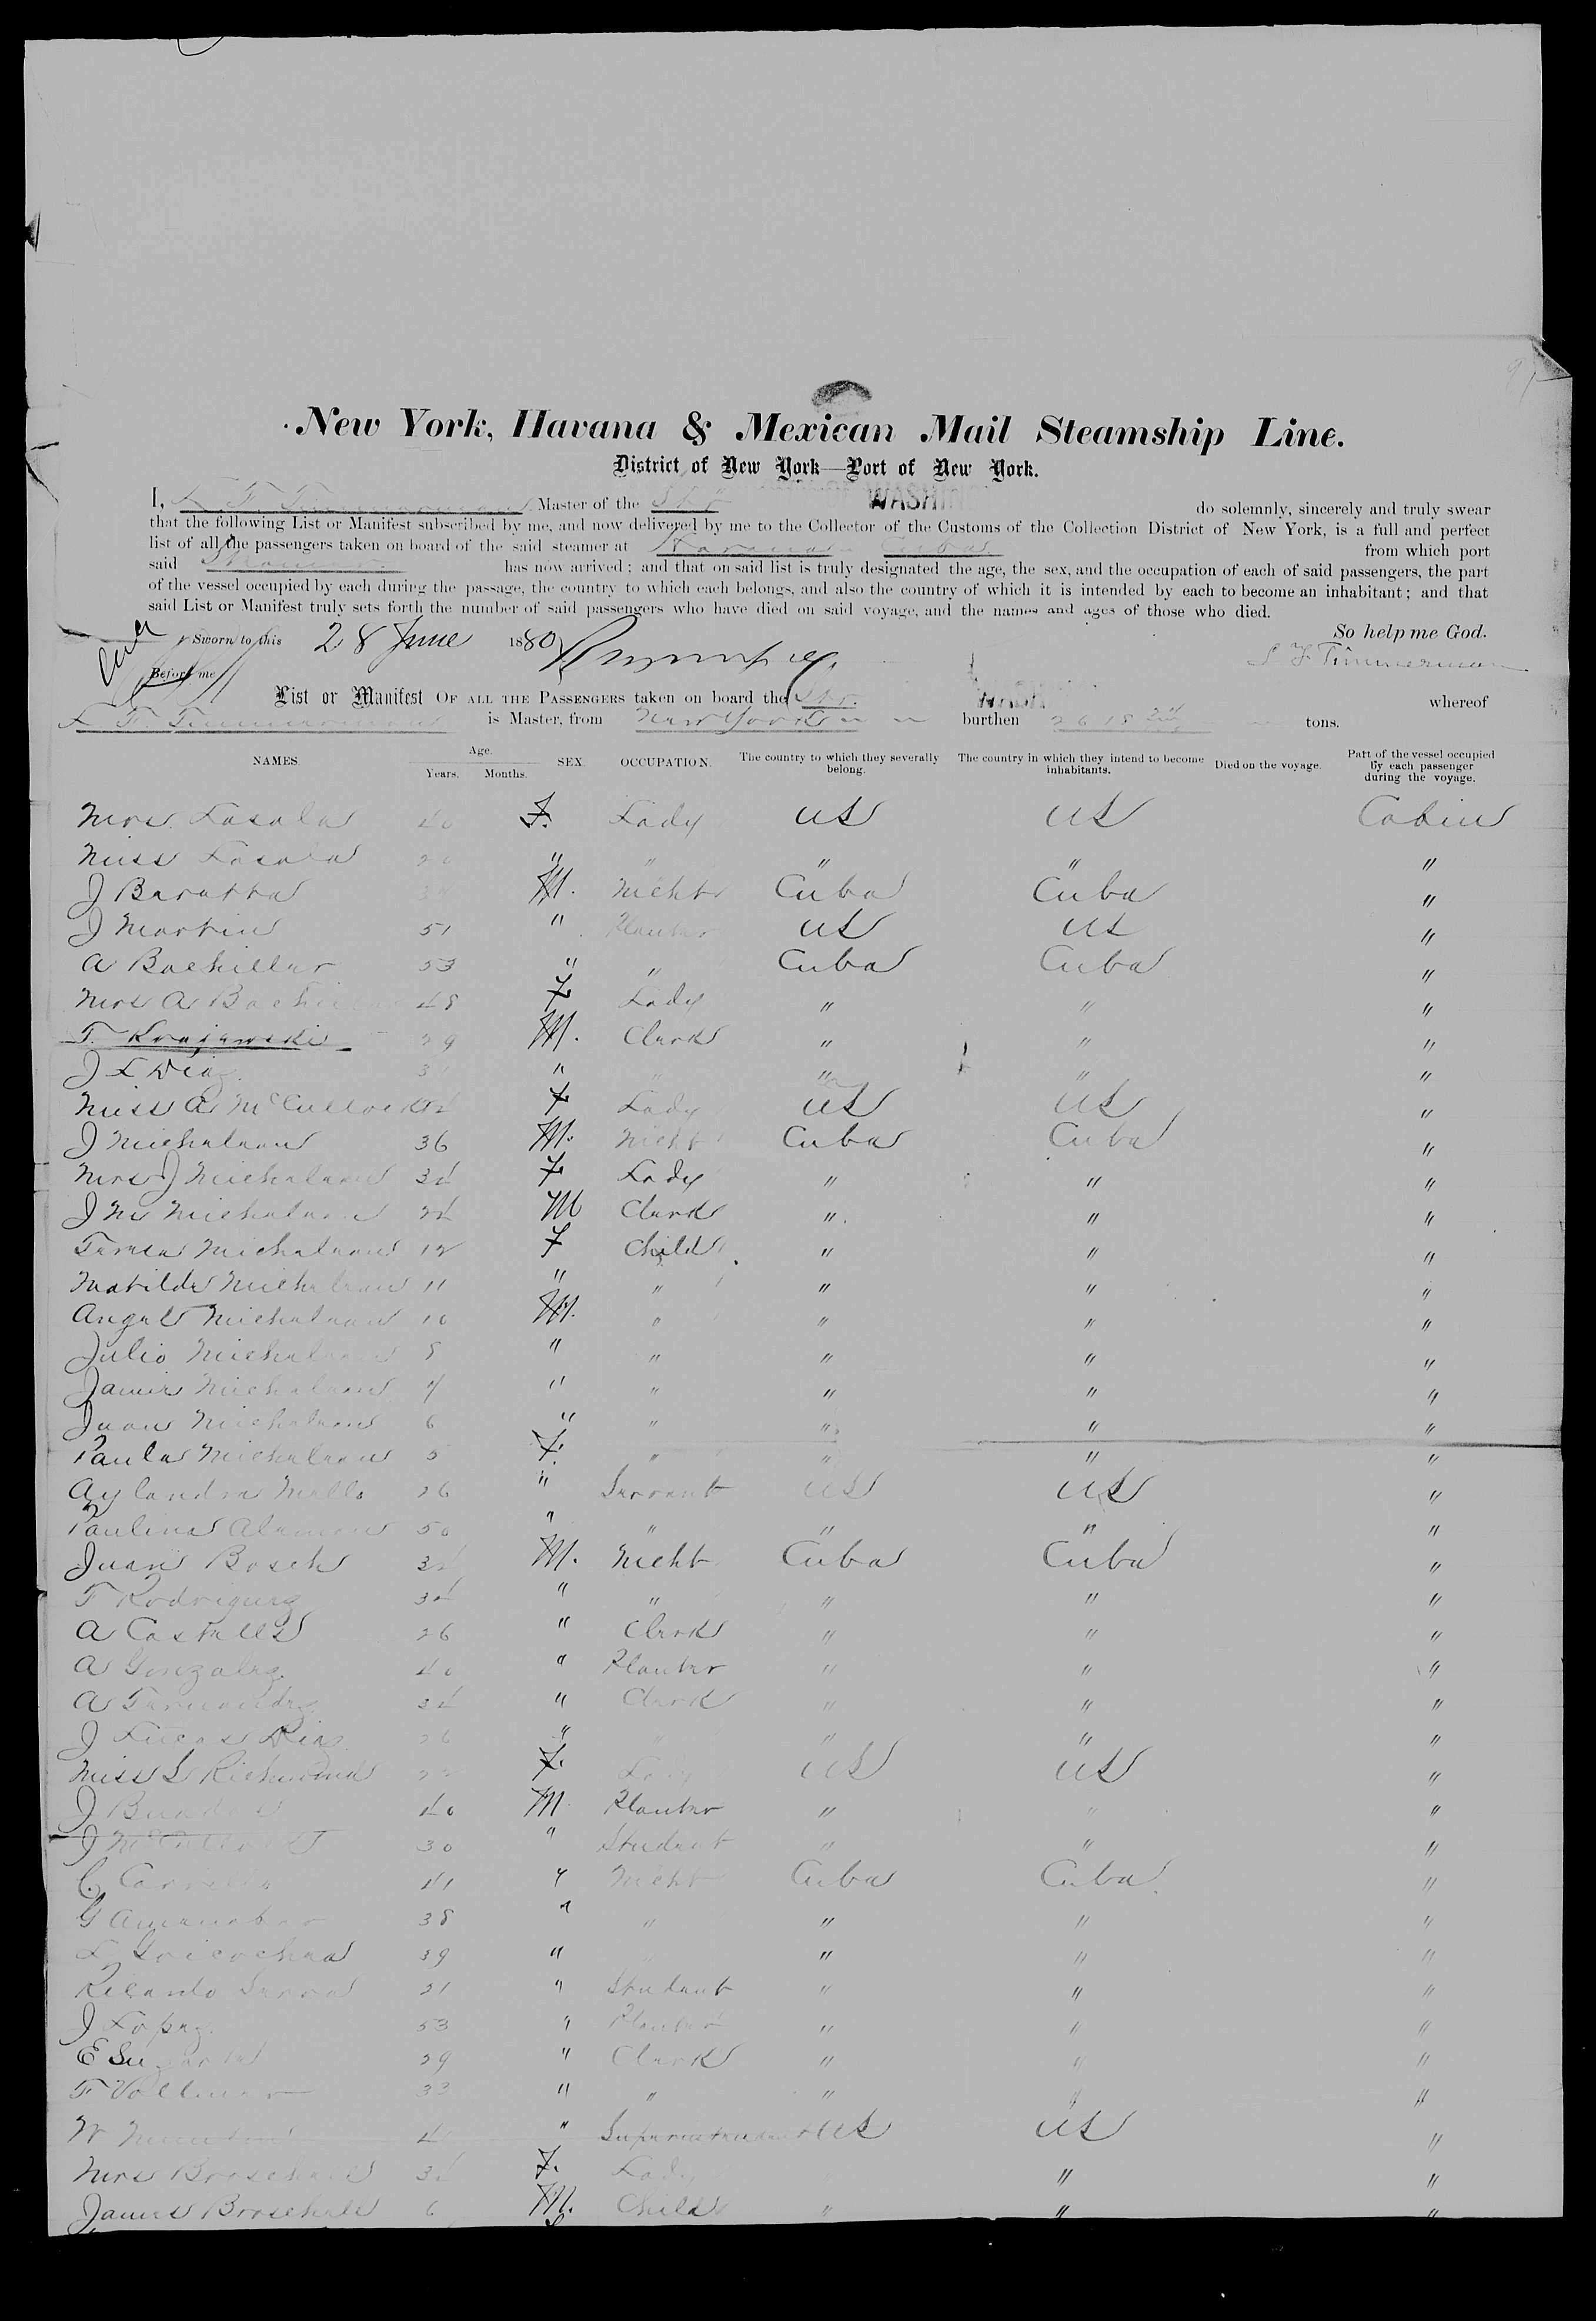 New York, Havana & Mexican Mail Steamship Line.
District of New York—Port of New York.
I, L F Timmerman, Master of the Str WASHIN do solemnly, sincerely and truly swear
that the following List or Manifest subscribed by me, and now delivered by me to the Collector of the Customs of the Collection District of New York, is a full and perfect
list of all the passengers taken on board of the said steamer at Havana Cuba from which port
said Steamer has now arrived; and that on said list is truly designated the age, the sex, and the occupation of each of said passengers, the part
of the vessel occupied by each during the passage, the country to which each belongs, and also the country of which it is intended by each to become an inhabitant; and that
said List or Manifest truly sets forth the number of said passengers who have died on said voyage, and the names and ages of those who died.
So help me God.
Sworn to this 28 June 1880
L F Timmerman
Before me
List or Manifest OF ALL THE PASSENGERS taken on board the Str. WASH whereof
L F. Timmerman is Master, from New York burthen 2618 tons.
NAMES. Age. Years. Months. SEX. OCCUPATION. The country to which they severally belong. The country in which they intend to become inhabitants. Died on the voyage. Part of the vessel occupied by each passenger during the voyage.
Mrs. Lasala 40 F. Lady US US Cabin
Miss Lasala 20 " " " " "
J Baratta M. Mcht Cuba Cuba "
J Martin 51 " Planter US US "
A Bachiller 53 " " Cuba Cuba "
Mrs A Bachiller 48 F Lady " " "
T. Krajewski 29 M. Clerk " " "
J L Diaz " " " " "
Miss A McCulloch F Lady US US "
J Michelena 36 M. Mcht Cuba Cuba "
Mrs J Michelena 34 F Lady " " "
J M Michelena 24 M Clerk " " "
Teresa Michelena 12 F Child " " "
Matilde Michelena 11 " " " " "
Angel Michelena 10 M. " " " "
Julio Michelena 8 " " " " "
Javier Michelena 7 " " " " "
Juan Michelena 6 " " " " "
Paula Michelena 5 F. " " " "
26 " Servant US US "
Paulina 50 " " " " "
Juan Bosch 34 M. Mcht Cuba Cuba "
F Rodriguez 34 " " " " "
A Castells 26 " Clerk " " "
A Gonzalez 40 " Planter " " "
A Fernandez 34 " Clerk " " "
J Lucas Diaz 26 " " " "
Miss L Richmond 22 F. Lady US US "
J 40 M Planter " " "
J McCulloch 30 " Student " " "
C. Carrillo 41 " Mcht Cuba Cuba "
G Amenabar 38 " " " " "
L Goicochea 39 " " " "
Ricardo Serra 21 " Student " " "
J Lopez 53 " Planter " " "
E 29 " Clerk " " "
F Vollmer 33 " " " " "
W " Superintendent US US "
Mrs 34 F. Lady " "
James 6 M. Child " " "